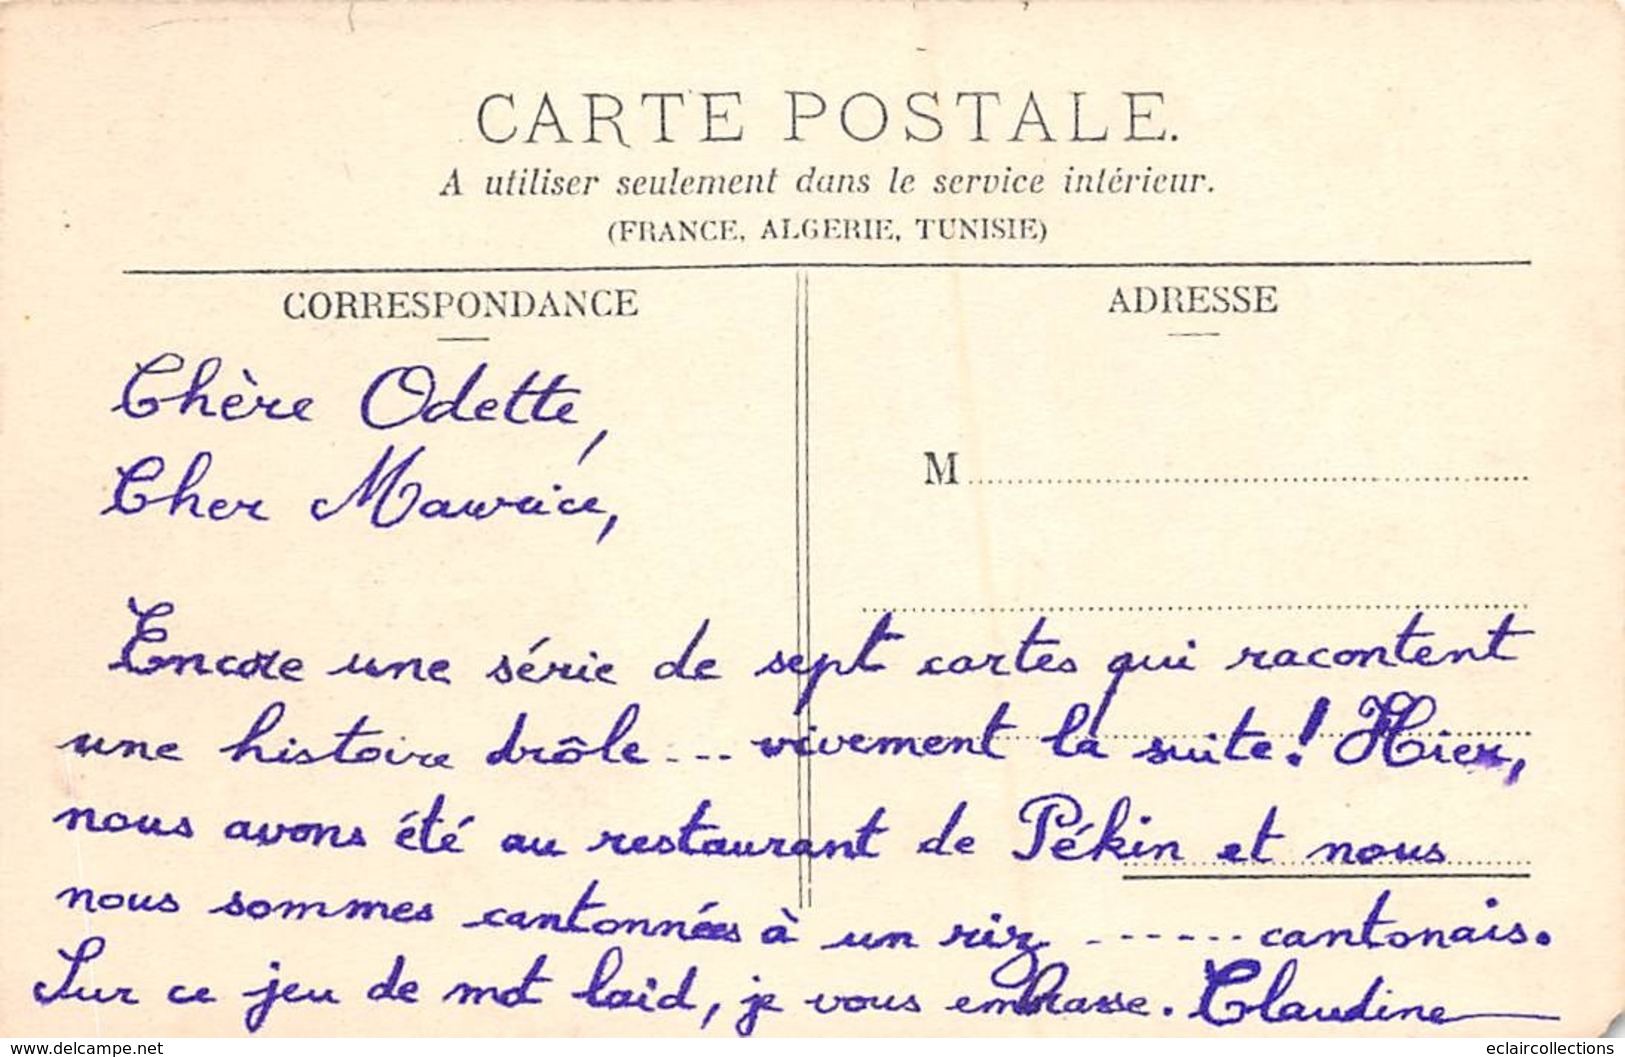 CARTE POSTALE.
A utiliser seulement dans le service intérieur.
(FRANCE, ALGERIE, TUNISIE)
CORRESPONDANCE
ADRESSE
M
Chère Odette,
Cher Maurice,
Encore une série de sept cartes qui racontent
une histoire drôle... vivement la suite! Hier,
nous avons été au restaurant de Pékin et nous
nous sommes cantonnées à un riz ------ cantonais.
Sur ce jeu de mot laid, je vous embrasse. Claudine
www.delcampe.net
eclaircollections